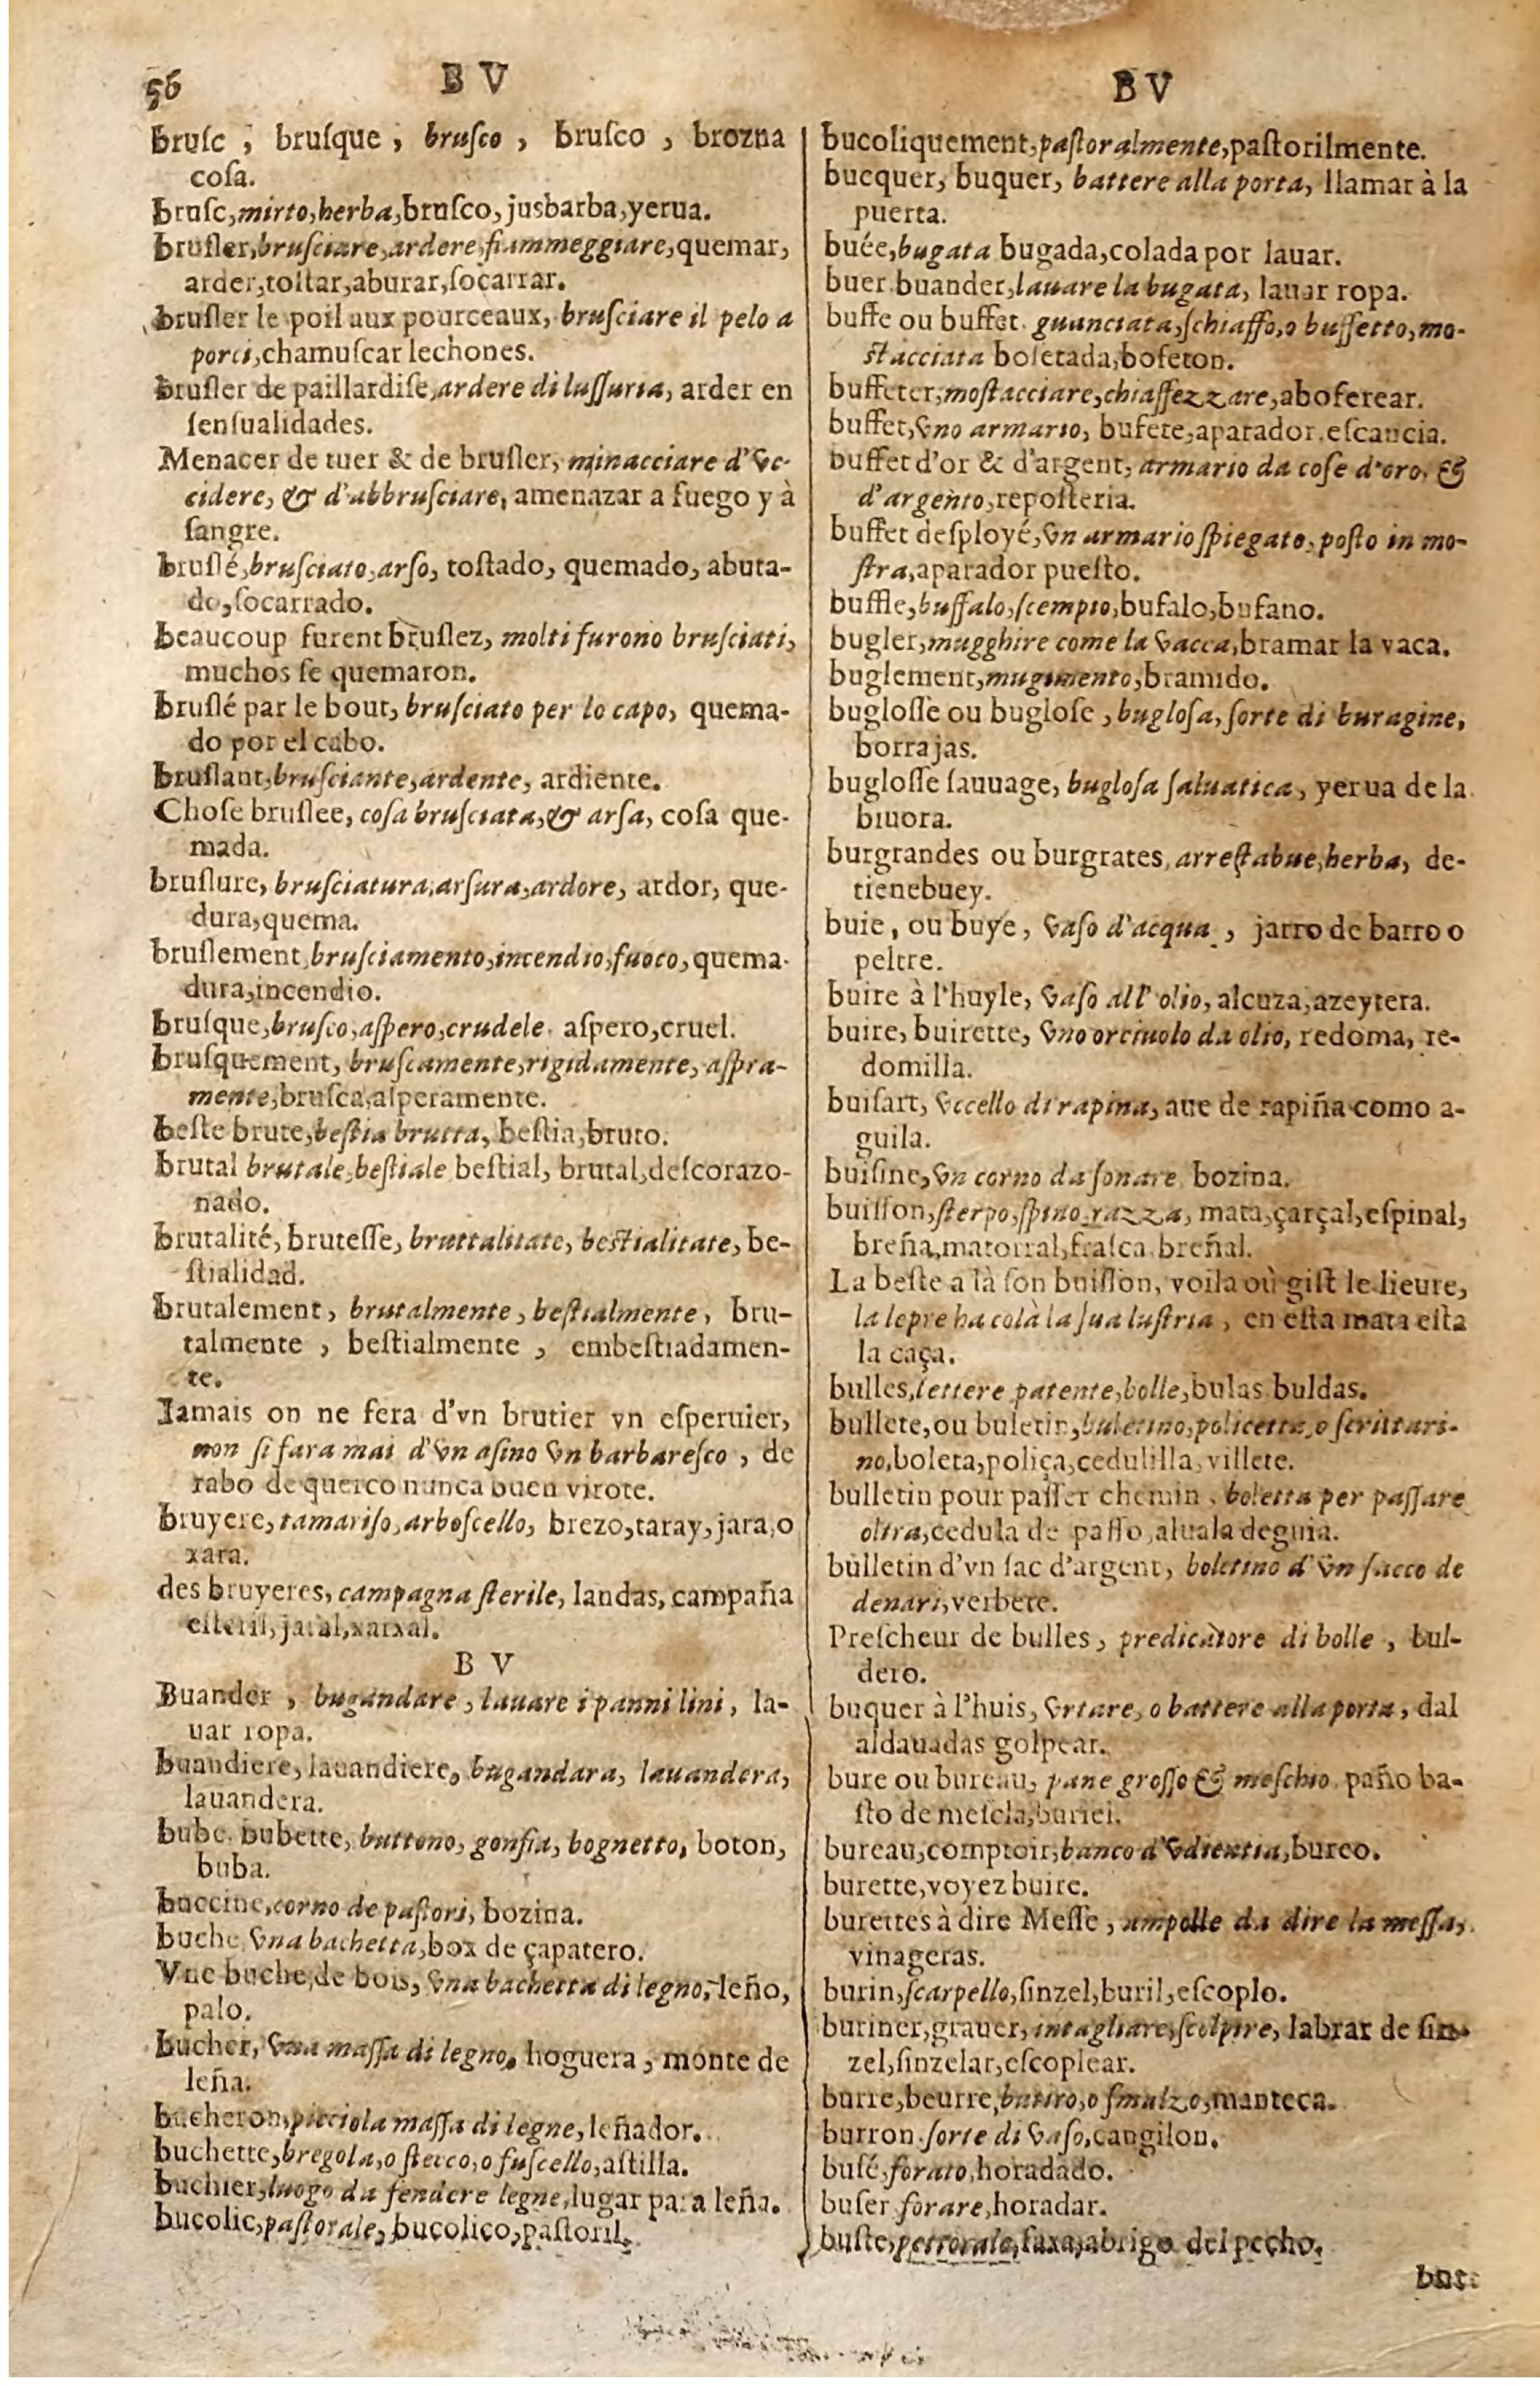 56
B V
brusc, brusque, brusco, brusco, brozna
cosa.
brusc, mirto, herba, brusco, jusbarba, yerua.
brusler, brusciare, ardere, fiammeggiare, quemar,
arder, tostar, aburar, socarrar.
brusler le poil aux pourceaux, brusciare il pelo a
porci, chamuscar lechones.
brusler de paillardise, ardere di lussuria, arder en
sensualidades.
Menacer de tuer & de brusler, minacciare d'vc-
cidere, & d'abbrusciare, amenazar a fuego y à
sangre.
bruslé, brusciato, arso, tostado, quemado, abuta-
do, socarrado.
beaucoup furent bruslez, molti furono brusciati,
muchos se quemaron.
bruslé par le bout, brusciato per lo capo, quema-
do por el cabo.
bruslant, brusciante, ardente, ardiente.
Chose bruslee, cosa brusciata, & arsa, cosa que-
mada.
bruslure, brusciatura, arsura, ardore, ardor, que-
dura, quema.
bruslement, brusciamento, incendio, fuoco, quema-
dura, incendio.
brusque, brusco, aspero, crudele. aspero, cruel.
brusquement, bruscamente, rigidamente, aspra-
mente, brusca, asperamente.
beste brute, bestia brutta, bestia, bruto.
brutal brutale, bestiale bestial, brutal, descorazo-
nado.
brutalité, brutesse, bruttalitate, bestialitate, be-
stialidad.
brutalement, brutalmente, bestialmente, bru-
talmente, bestialmente, embestiadamen-
te.
Iamais on ne fera d'vn brutier vn esperuier,
non si fara mai d'vn asino vn barbaresco, de
rabo de querco nunca buen virote.
bruyere, tamariso, arboscello, brezo, taray, jara, o
xara.
des bruyeres, campagna sterile, landas, campaña
esteril, jaral, xarxal.
B V
Buander, bugandare, lauare i panni lini, la-
uar ropa.
buandiere, lauandiere, bugandara, lauandera,
lauandera.
bube, bubette, buttono, gonfia, bognetto, boton,
buba.
buccine, corno de pastori, bozina.
buche vna bachetta, box de çapatero.
Vne buche, de bois, vna bachetta di legno, leño,
palo.
bucher, vna massa di legno, hoguera, monte de
leña.
bucheron, picciola massa di legne, leñador.
buchette, bregola, o stecco, o fuscello, astilla.
buchier, luogo da fendere legne, lugar para leña.
bucolic, pastorale, bucolico, pastoril.
B V
bucoliquement, pastoralmente, pastorilmente.
bucquer, buquer, battere alla porta, llamar à la
puerta.
buée, bugata bugada, colada por lauar.
buer. buander, lauare la bugata, lauar ropa.
buffe ou buffet. guanciata, schiaffo, o buffetto, mo-
stacciata bofetada, bofeton.
buffeter, mostacciare, chiaffezzare, aboferear.
buffet, vno armario, bufete, aparador, escancia.
buffet d'or & d'argent, armario da cose d'oro, &
d'argento, reposteria.
buffet desployé, vn armario spiegato, posto in mo-
stra, aparador puesto.
buffle, buffalo, scempio, bufalo, bufano.
bugler, mugghire come la vacca, bramar la vaca.
buglement, mugimento, bramido.
buglosse ou buglose, buglosa, sorte di buragine,
borrajas.
buglosse sauuage, buglosa saluatica, yerua de la
biuora.
burgrandes ou burgrates, arrestabue, herba, de-
tienebuey.
buie, ou buye, vaso d'acqua, jarro de barro o
peltre.
buire à l'huyle, vaso all' olio, alcuza, azeytera.
buire, buirette, vno orciuolo da olio, redoma, re-
domilla.
buisart, vccello di rapina, aue de rapiña como a-
guila.
buisine, vn corno da sonare, bozina.
buisson, sterpo, spino, razza, mata, çarçal, espinal,
breña, matorral, frasca, breñal.
La beste a là son buisson, voila où gist le lieure,
la lepre ha colà la sua lustria, en esta mata esta
la caça.
bulles, lettere patente, bolle, bulas buldas.
bullete, ou buletin, buletino, policetta, o scrittari-
no, boleta, poliça, cedulilla, villete.
bulletin pour passer chemin, boletta per passare
oltra, cedula de passo, aluala de guia.
bulletin d'vn sac d'argent, boletino d'vn sacco de
denari, verbete.
Prescheur de bulles, predicatore di bolle, bul-
dero.
buquer à l'huis, vrtare, o battere alla porta, dal
aldauadas golpear.
bure ou bureau, pane grosso & meschio. paño ba-
sto de mescla, buriel.
bureau, comptoir, banco d'vdientia, bureo.
burette, voyez buire.
burettes à dire Messe, ampolle da dire la messa,
vinageras.
burin, scarpello, sinzel, buril, escoplo.
buriner, grauer, intagliare, scolpire, labrar de sin-
zel, sinzelar, escoplear.
burre, beurre, butiro, o smalzo, manteca.
burron. sorte di vaso, cangilon.
busé, forato, horadado.
buser forare, horadar.
buste, pettorale, faxa, abrigo del pecho.